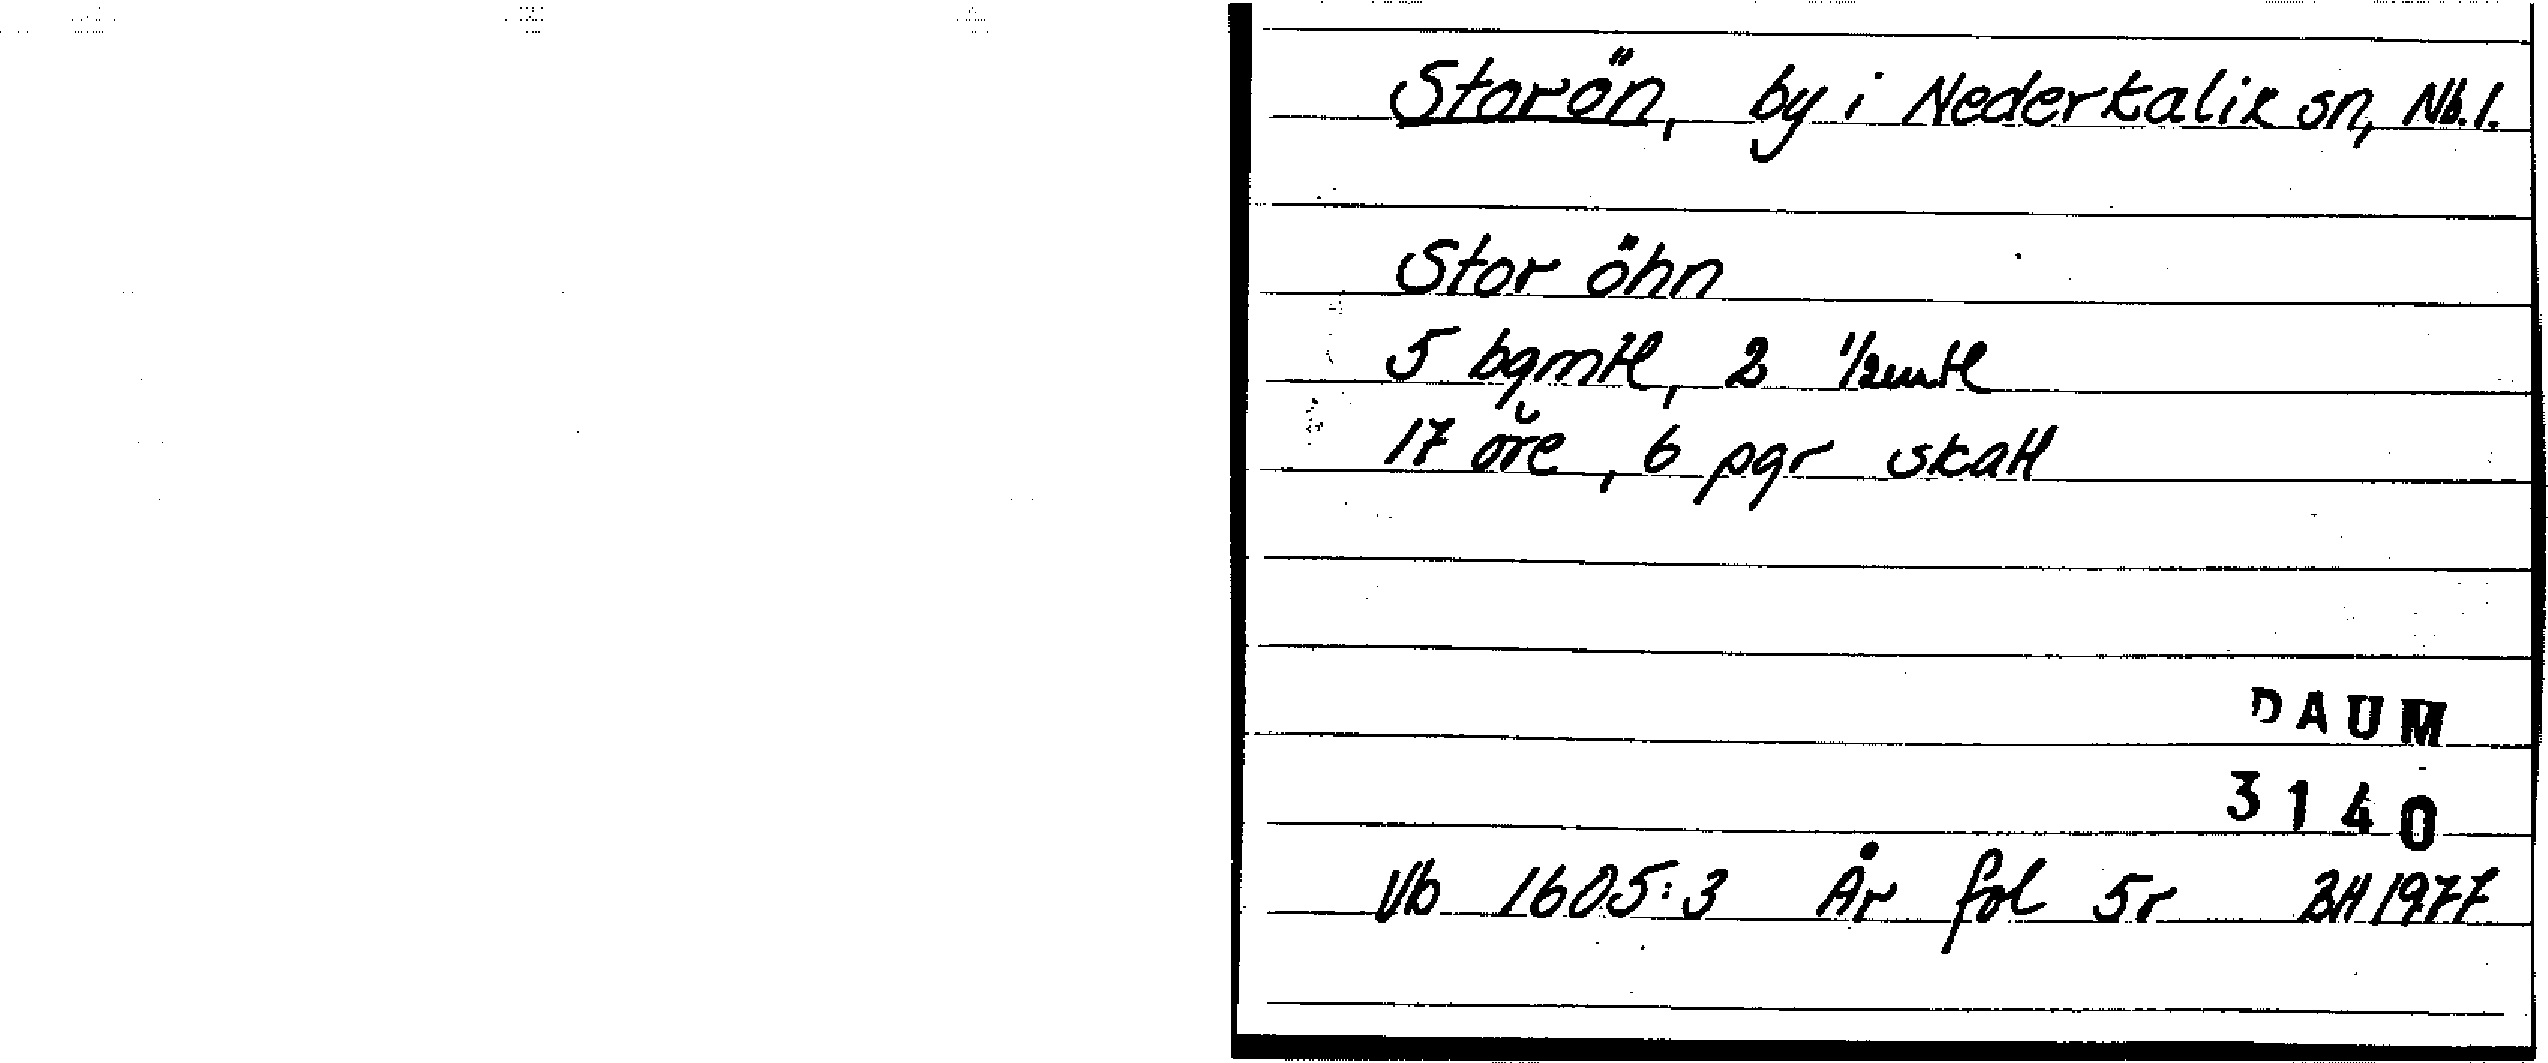 Storön, by i Nederkalix sn, Nb.l.
Stor öhn
5 bgmtl, 2 1/2mtl
17 öre, 6 pgr skatt
DAUM
3140
Vb 1605:3 År fol 5r BH 1977